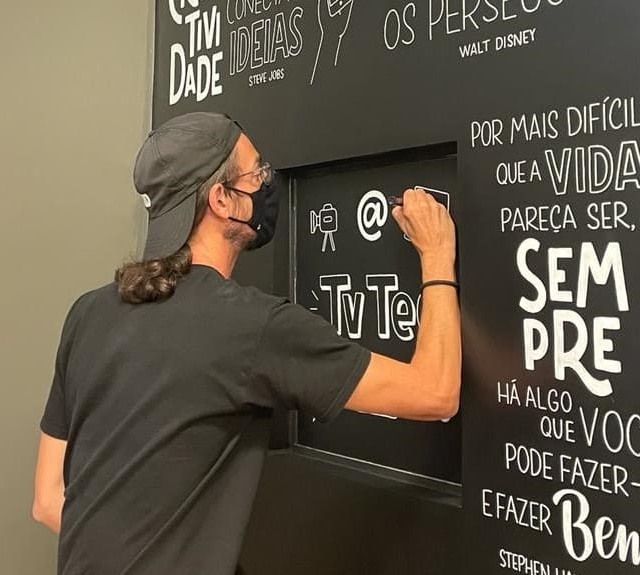 TIVI
DADE
IDEIAS
STEVE JOBS
OS
WALT DISNEY
@
Tv
POR MAIS DIFÍCIL
QUE A VIDA
PAREÇA SER,
SEM
PRE
HÁ ALGO
QUE VOC
PODE FAZER-
E FAZER Bem
STEPHEN